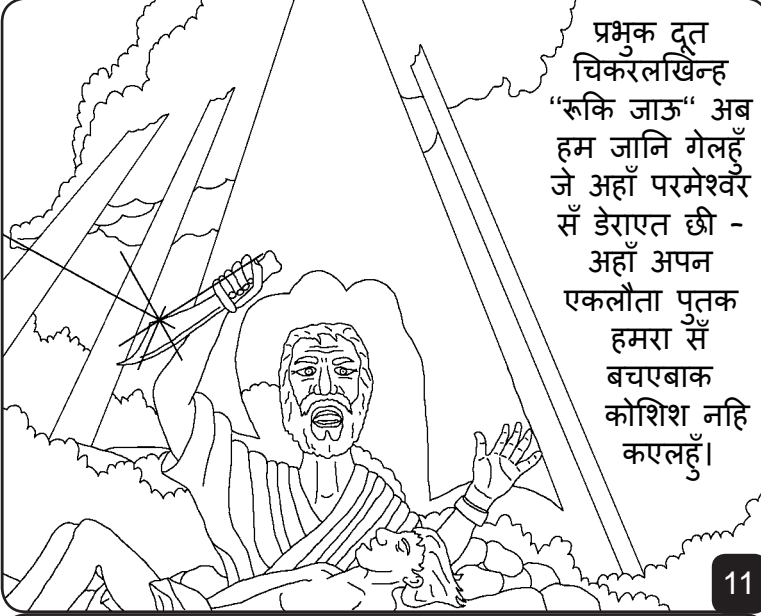 प्रभुक दूत
चिकरलखिन्ह
“रूकि जाऊ“ अब
हम जानि गेलहुँ
जे अहाँ परमेश्वर
सँ डेराएत छी -
अहाँ अपन
एकलौता पुतक
हमरा सँ
बचएबाक
कोशिश नहि
कएलहुँ।
11